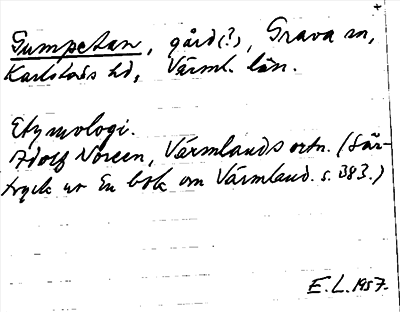 Gumpetan, gård(?), Grava sn,
Karlstads hd, Värml. län.
Etymologi.
Adolf Noreen, Värmlands ortn. (Sär-
tryck ur En bok om Värmland. s. 383.)
E.L. 1957.